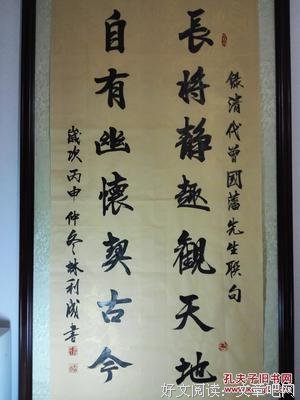 錄清代曾國藩先生聯句
長將靜趣觀天地
自有幽懷契古今
歲次丙申仲冬林利成書
好文阅读:-文章吧网
孔夫子旧书网